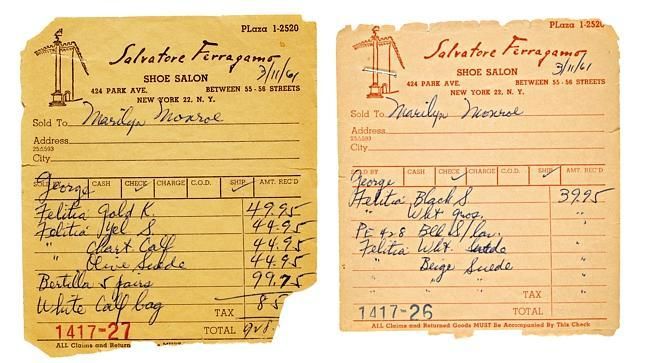 PLaza 1-2520
Salvatore Ferragamo
3/11/61
SHOE SALON
424 PARK AVE. BETWEEN 55-56 STREETS
NEW YORK 22, N. Y.
Sold To Marilyn Monroe
Address
255593
City
SOLD BY George CASH CHECK ✓ CHARGE C.O.D. SHIP ✓ AMT. REC'D
Felitia Gold K. 49.95
Felitia Yel S. 44.95
" Chart Calf 44.95
" Olive Suede 44.95
Bertilla 5 pairs 99.75
White Calf bag 85
TAX
1417-27 TOTAL
ALL Claims and Return
PLaza 1-2520
Salvatore Ferragamo
3/11/61
SHOE SALON
424 PARK AVE. BETWEEN 55-56 STREETS
NEW YORK 22, N. Y.
Sold To Marilyn Monroe
Address
255593
City
SOLD BY George CASH CHECK ✓ CHARGE C.O.D. SHIP ✓ AMT. REC'D
Felitia Black S. 39.95
" Wht Gros. "
PE 428 Blk S/ "
Felitia Wht "
" Beige Suede "
" " " "
TAX "
1417-26 TOTAL
ALL Claims and Returned Goods MUST Be Accompanied By This Check